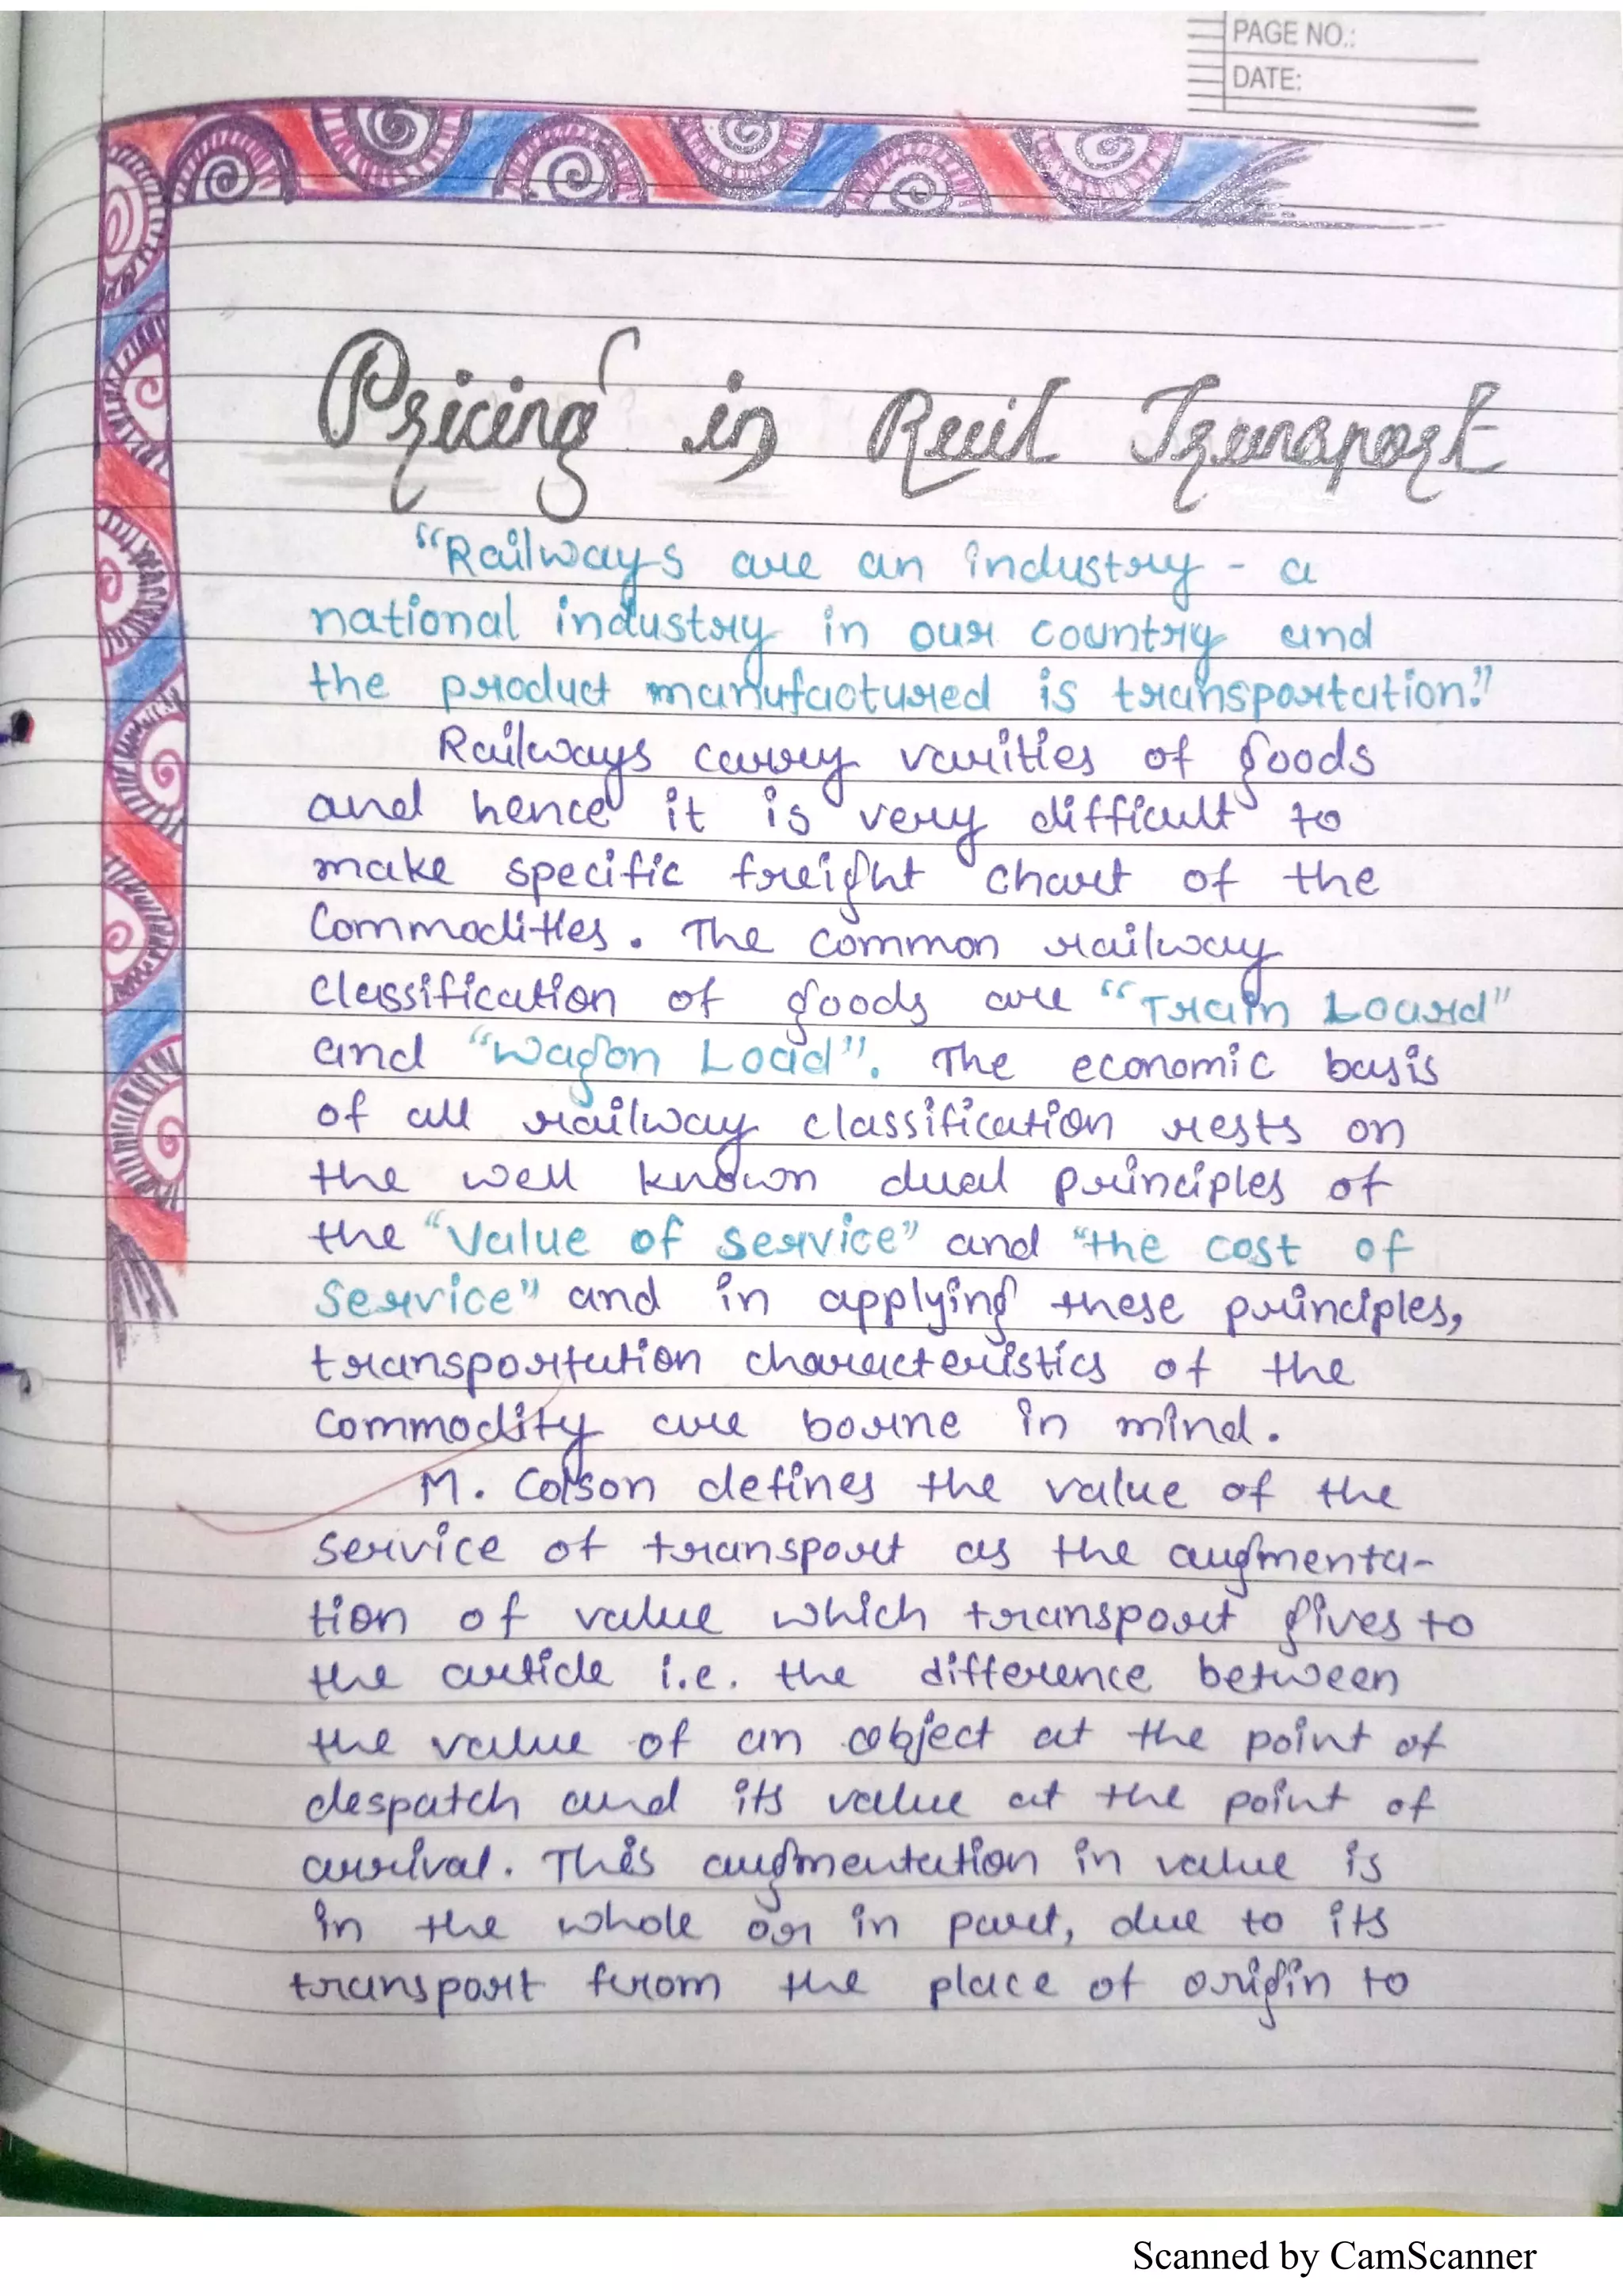 PAGE NO.:
DATE:
Pricing in Rail Transport
"Railways are an industry - a
national industry in our country and
the product manufactured is transportation."
Railways carry varities of goods
and hence it is very difficult to
make specific freight chart of the
Commodities. The common railway
classification of goods are "Train Loard"
and "Wagon Load". The economic basis
of all railway classification rests on
the well known dual principles of
the "Value of Service" and "the cost of
Service" and in applying these principles,
transportation characteristics of the
commodity are borne in mind.
M. Colson defines the value of the
service of transport as the augmenta-
tion of value which transport gives to
the article i.e. the difference between
the value of an object at the point of
despatch and its value at the point of
arrival. This augmentation in value is
in the whole or in part, due to its
transport from the place of origin to
Scanned by CamScanner